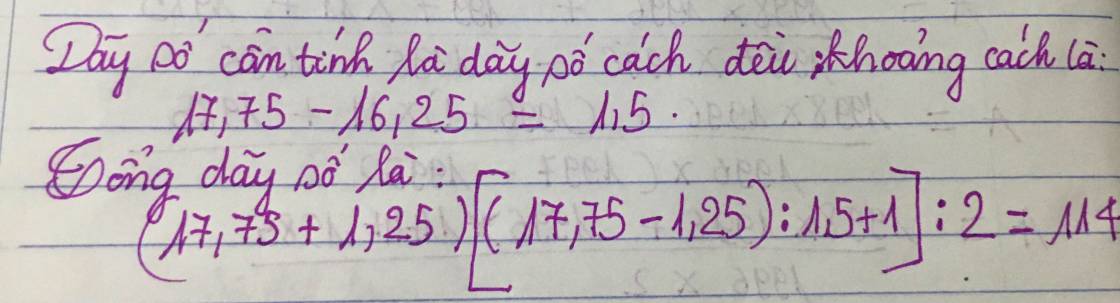 Dãy số cần tính là dãy số cách đều; khoảng cách là:
17,75 - 16,25 = 1,5.
Tổng dãy số là:
(17,75 + 1,25) [(17,75 - 1,25) : 1,5 + 1] : 2 = 114